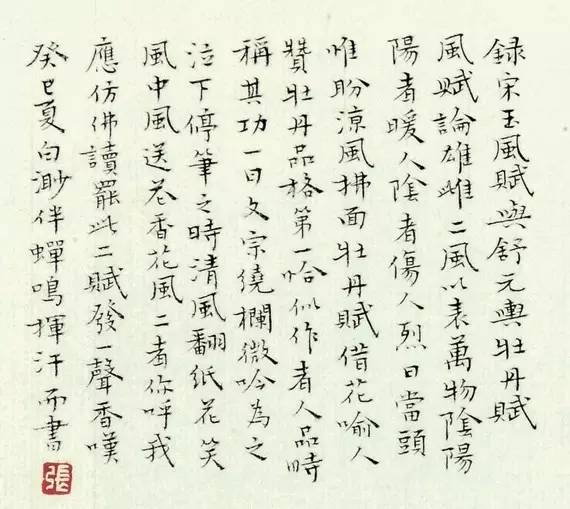 録宋玉風賦與舒元輿牡丹賦
風賦論雄雌二風以表萬物陰陽
陽者暖人陰者傷人烈日當頭
唯盼涼風拂面牡丹賦借花喻人
贊牡丹品格第一恰似作者人品時
稱其功一日文宗繞欄微吟為之
泣下停筆之時清風翻紙花笑
風中風送花香花風二者你呼我
應仿佛讀罷此二賦發一聲香嘆
癸巳夏白渺伴蟬鳴揮汗而書
張